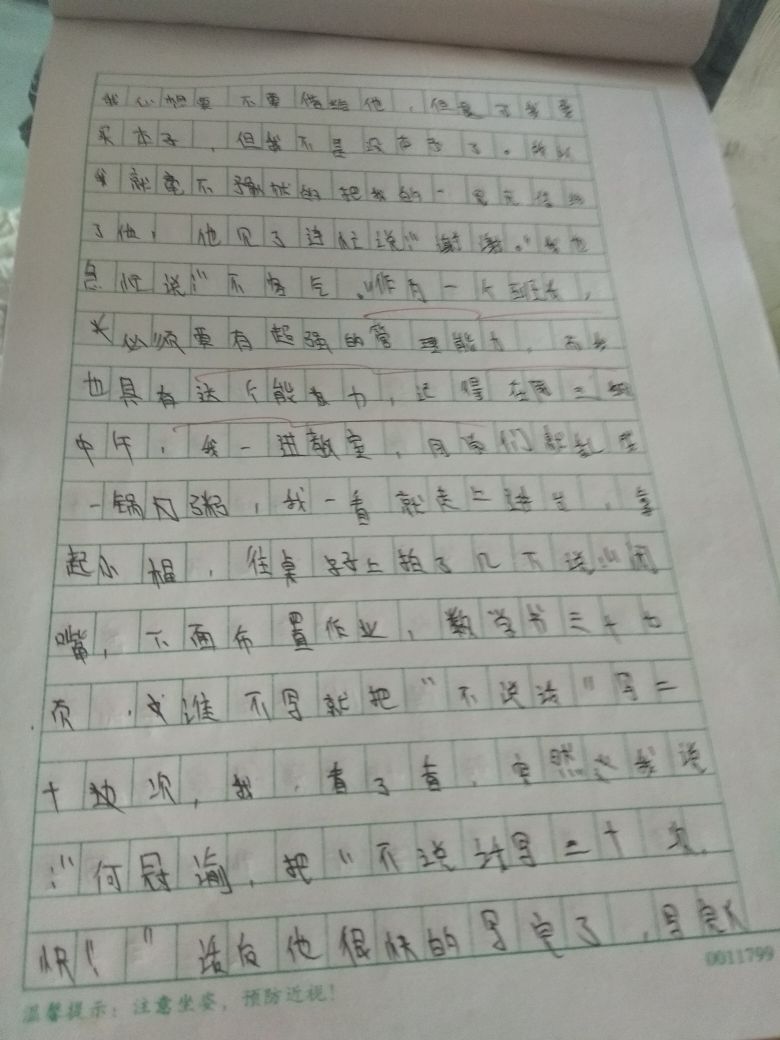 我心想要不要借给他,但是了我要
买本子,但我不是没有了。所以
我就毫不犹豫的把我的一元借给
了他,他见了连忙说:"谢谢。"我也
急忙说:"不客气。"作为一个班长,
必须要有超强的管理能力,而我
也具有这个能力,记得在周三
中午,我一进教室,同学们就乱
一锅内粥,我一看就走上讲台,拿
起小棍,往桌子上拍了几下说:"闭
嘴,下面布置作业,数学书三十七
页,谁不写就把"不说话"写二
十次,我,看了看,突然我说
:"何冠渝,把"不说话写二十次,
快!"话后他很快的写完了,写完
温馨提示:注意坐姿,预防近视!
0011799